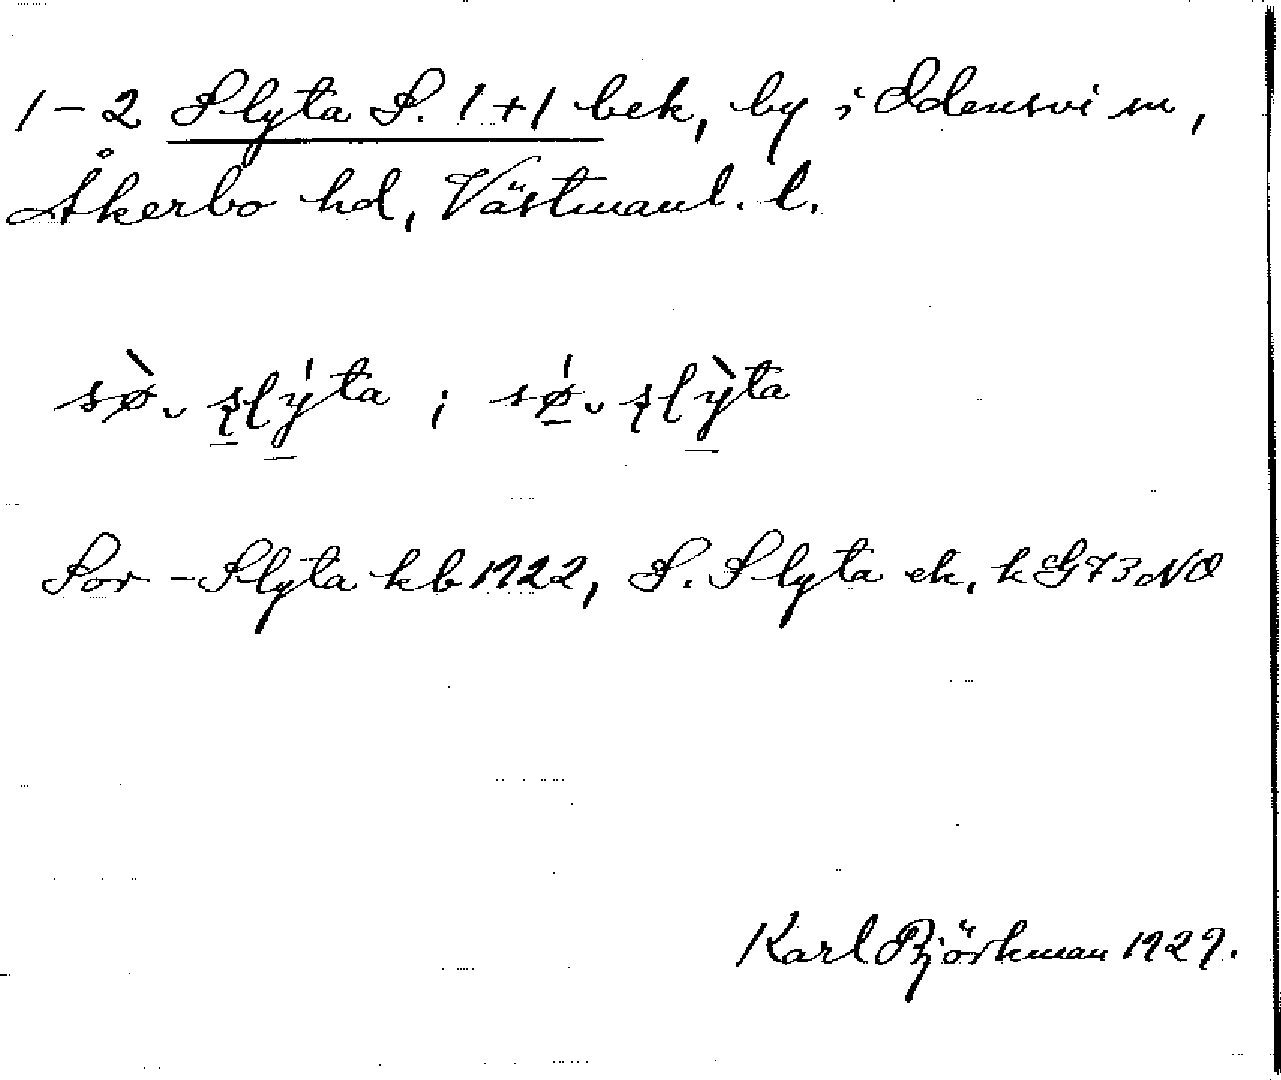 1–2 Slyta S. 1+1 bek, by i Odensvi sn,
Åkerbo hd, Västmanl. l.
sø̀. slýta ; sǿ. slỳta
Sör-Slyta kb 1922, S. Slyta ek, kG73NO
Karl Björkman 1929.